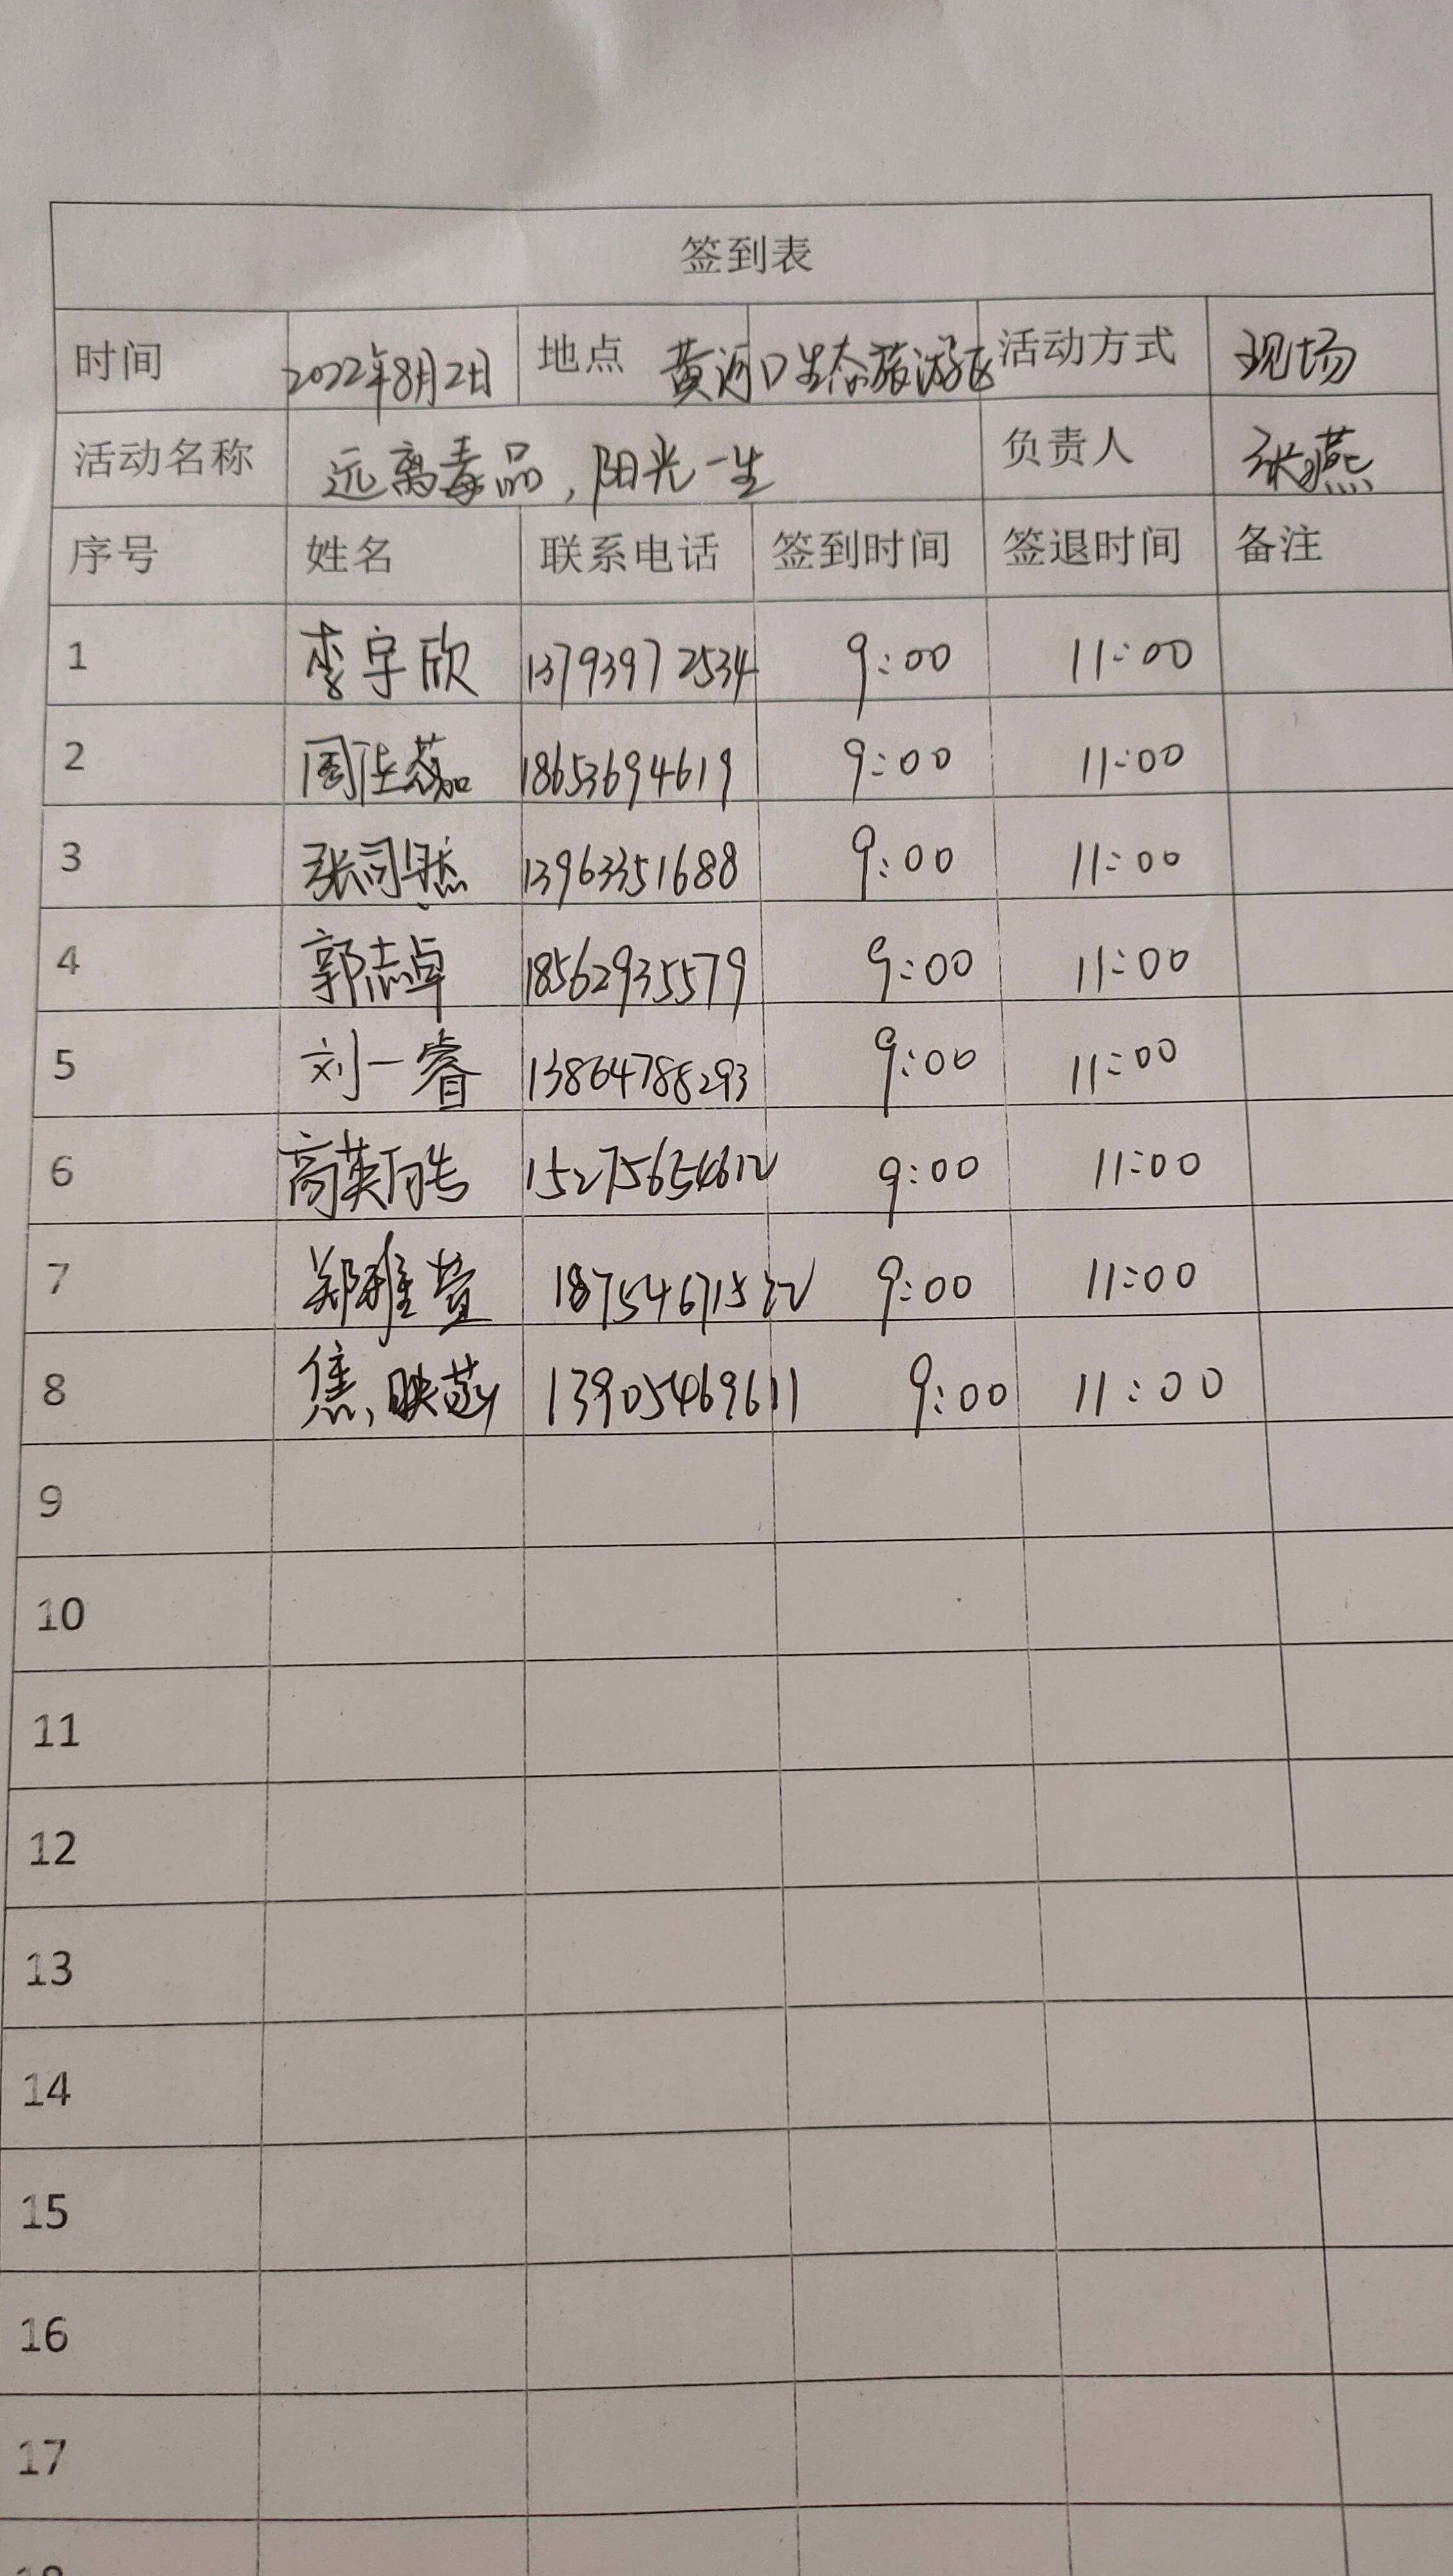 签到表
时间 2022年8月2日 地点 黄河口生态旅游区 活动方式 现场
活动名称 远离毒品,阳光一生 负责人 张燕
序号 姓名 联系电话 签到时间 签退时间 备注
1 李宇欣 13793972534 9:00 11:00
2 18653694619 9:00 11:00
3 13963351688 9:00 11:00
4 郭志卓 18562935579 9:00 11:00
5 刘一睿 13864788293 9:00 11:00
6 高英皓 15275654612 9:00 11:00
7 郑雅萱 18754671522 9:00 11:00
8 焦映菡 13905469611 9:00 11:00
9
10
11
12
13
14
15
16
17